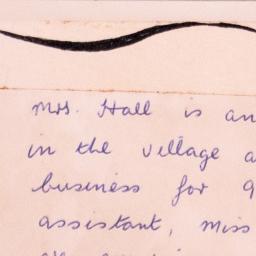 Mrs. Hall is an
in the village a
business for 9
assistant, miss